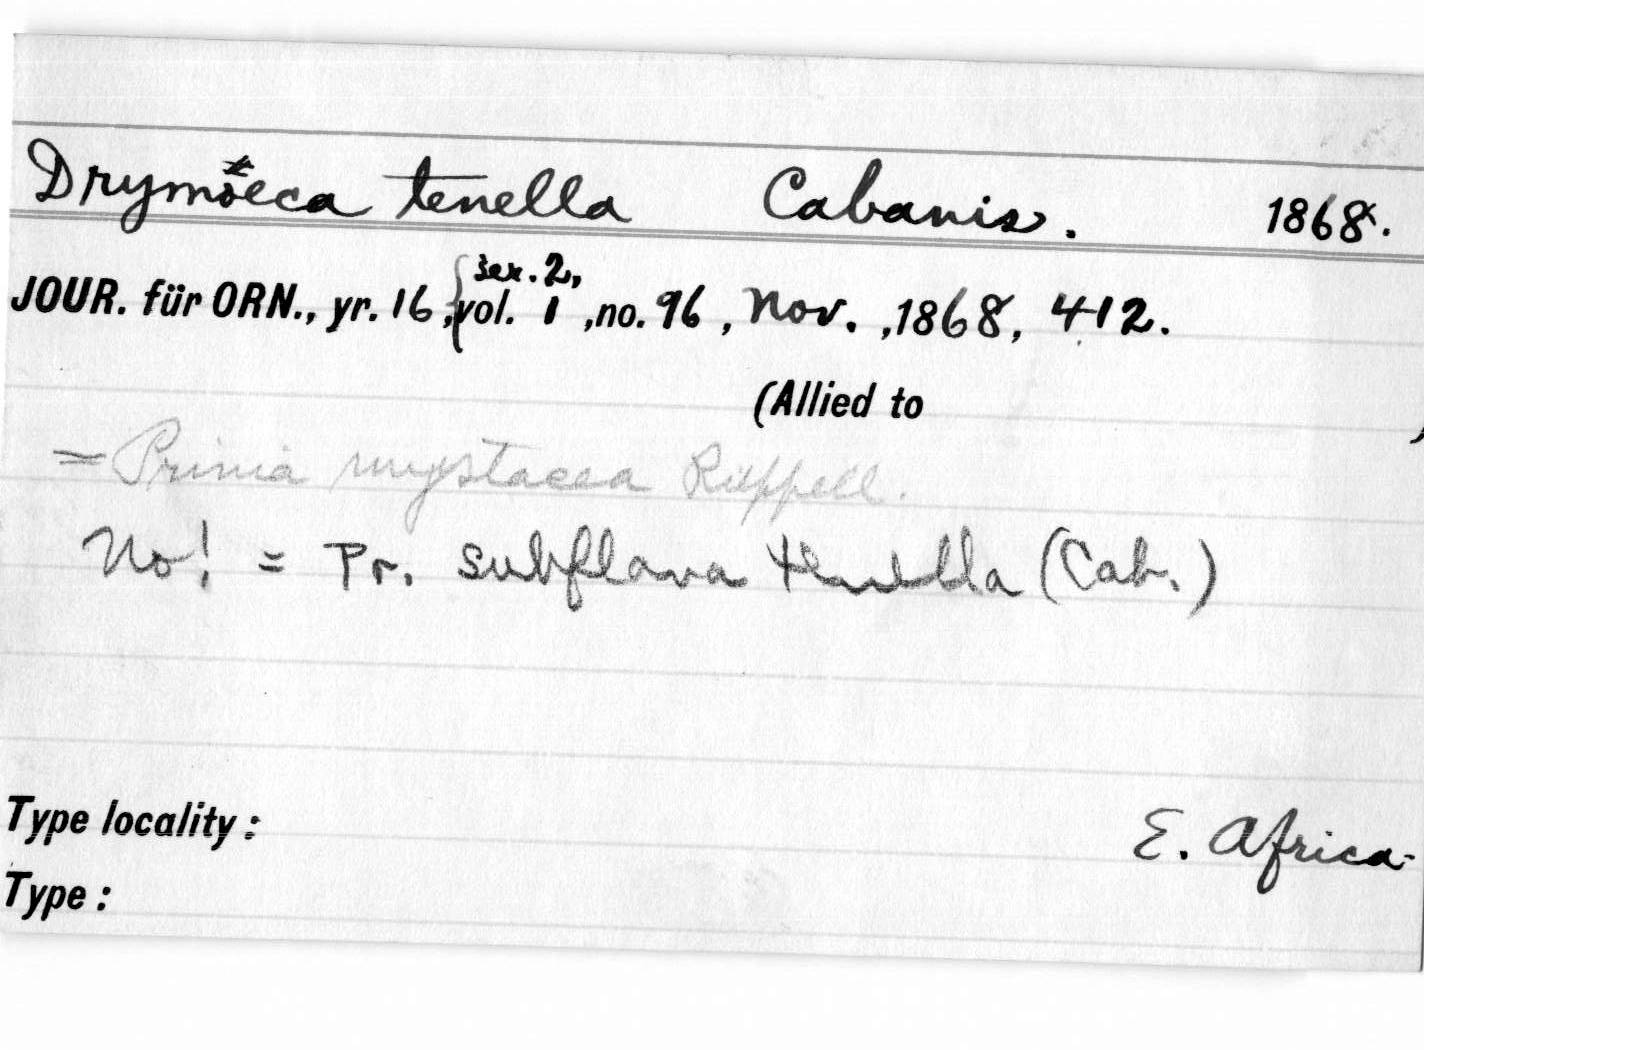 Drymoeca tenella Cabanis. 1868.
JOUR. für ORN., yr. 16, {ser. 2, vol. 1, no. 96, Nov., 1868, 412.
(Allied to )
= Prinia mystacea Rüppell.
No! = Pr. subflava tenella (Cab.)
Type locality: E. Africa
Type: